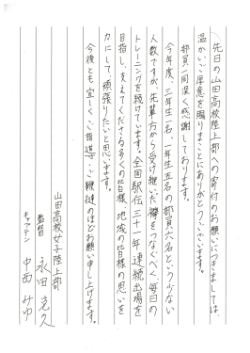 先日の山田高校陸上部への寄付のお願いにつきましては、
温かいご厚意を賜りまことにありがとうございます。
部員一同深く感謝しております。
今年度、三年生一名、一年生五名の部員六名という少ない
人数ですが、先輩方から受け継いだ襷をつなぐべく、毎日の
トレーニングを続けています。全国駅伝三十一年連続出場を
目指し、支えてくださる多くの皆様、地域の皆様の思いを
力にして、頑張りたいと思います。
今後とも、宜しくご指導、ご鞭撻のほどお願い申し上げます。
山田高校女子陸上部
監督 永田克久
キャプテン 中西みゆ